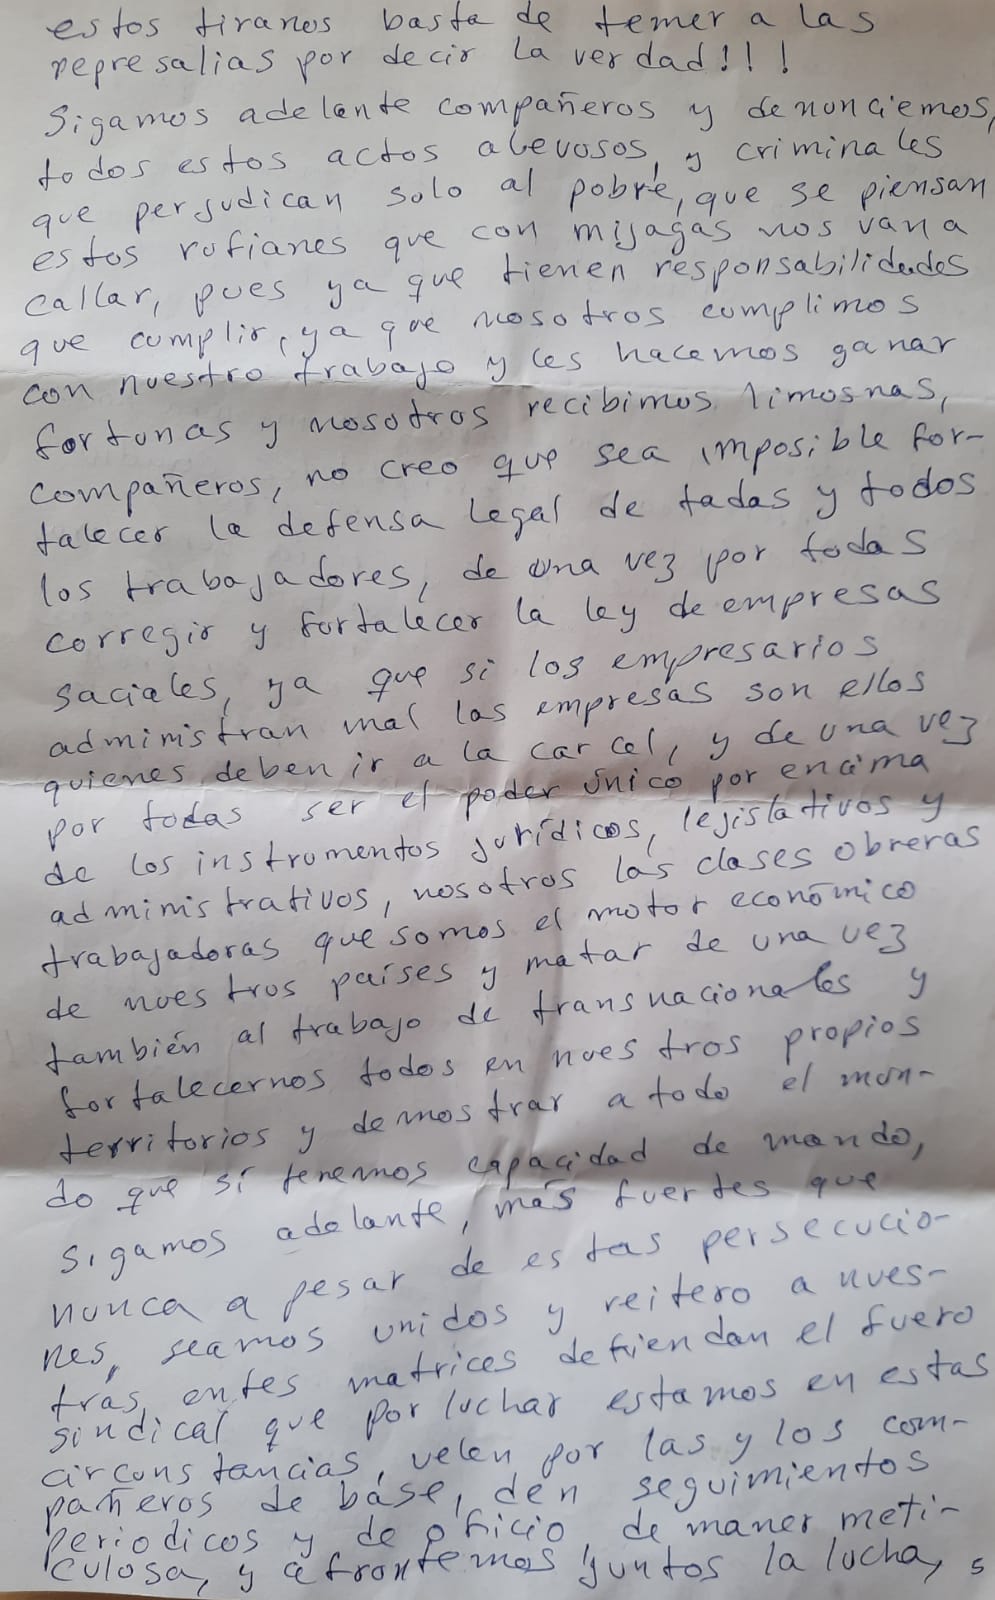 estos tiranos basta de temer a las
represalias por decir la verdad!!!
Sigamos adelante compañeros y denunciemos,
todos estos actos alevosos, y criminales
que perjudican solo al pobre, que se piensan
estos rufianes que con mijagas nos van a
callar, pues ya que tienen responsabilidades
que cumplir, ya que nosotros cumplimos
con nuestro trabajo y les hacemos ganar
fortunas y nosotros recibimos limosnas,
compañeros, no creo que sea imposible for-
talecer la defensa legal de tadas y todos
los trabajadores, de una vez por todas
corregir y fortalecer la ley de empresas
saciales, ya que si los empresarios
administran mal las empresas son ellos
quienes deben ir a la carcel, y de una vez
por todas ser el poder único por encima
de los instrumentos jurídicos, lejislativos y
administrativos, nosotros las clases obreras
trabajadoras que somos el motor económico
de nuestros países y matar de una vez
también al trabajo de transnacionales y
fortalecernos todos en nuestros propios
territorios y demostrar a todo el mun-
do que sí tenemos capacidad de mando,
Sigamos adelante, más fuertes que
nunca a pesar de estas persecucio-
nes, seamos unidos y reitero a nues-
tras entes matrices defiendan el fuero
sindical que por luchar estamos en estas
circunstancias, velen por las y los com-
pañeros de base, den seguimientos
periodicos y de oficio de maner meti-
culosa, y afrontemos juntos la lucha, 5